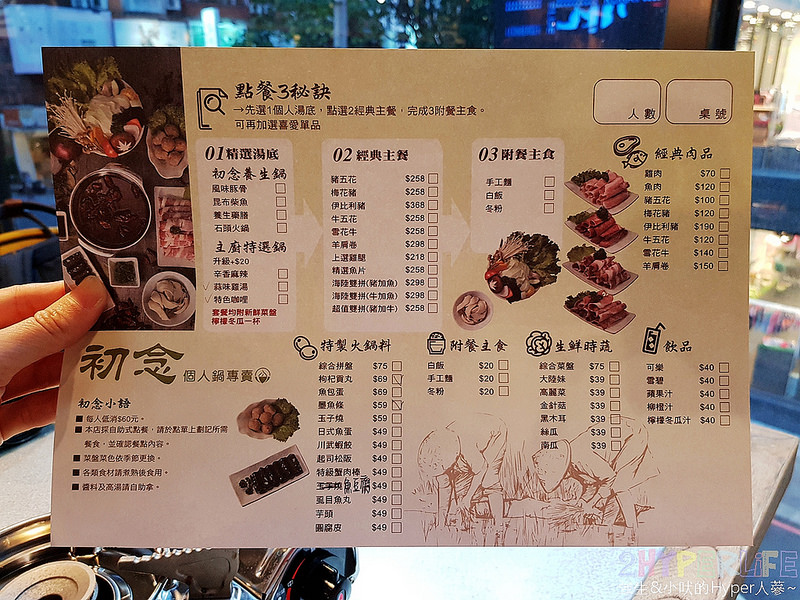 點餐3秘訣
→先選1個人湯底，點選2經典主餐，完成3附餐主食。
可再加選喜愛單品
人數
桌號
01精選湯底
初念養生鍋
風味豚骨
昆布柴魚
養生藥膳
石頭火鍋
主廚特選鍋
升級+$20
辛香麻辣
蒜味雞湯
特色咖哩
套餐均附新鮮菜盤
檸檬冬瓜一杯
02 經典主餐
豬五花 $258
梅花豬 $258
伊比利豬 $368
牛五花 $258
雪花牛 $258
羊肩卷 $298
上選雞腿 $218
精選魚片 $258
海陸雙拼(豬加魚) $298
海陸雙拼(牛加魚) $298
超值雙拼(豬加牛) $258
03 附餐主食
手工麵
白飯
冬粉
經典肉品
雞肉 $70
魚肉 $120
豬五花 $100
梅花豬 $120
伊比利豬 $190
牛五花 $120
雪花牛 $140
羊肩卷 $150
初念 個人鍋專賣
初念小語
■ 每人低消$60元。
■ 本店採自助式點餐，請於點單上劃記所需
餐食，並確認餐點內容。
■ 菜盤菜色依季節更換。
■ 各類食材請煮熟後食用。
■ 醬料及高湯請自助拿。
特製火鍋料
綜合拼盤 $75
枸杞貢丸 $69
魚包蛋 $69
墨魚條 $59
玉子燒 $59
日式魚蛋 $49
川武蝦餃 $49
起司松阪 $49
特級蟹肉棒 $49
魚豆腐 $49
虱目魚丸 $49
芋頭 $49
圓腐皮 $49
附餐主食
白飯 $20
手工麵 $20
冬粉 $20
生鮮時蔬
綜合菜盤 $75
大陸妹 $39
高麗菜 $39
金針菇 $39
黑木耳 $39
絲瓜 $39
南瓜 $39
飲品
可樂 $40
雪碧 $40
蘋果汁 $40
柳橙汁 $40
檸檬冬瓜汁 $40
2HYPERLiFE
生&小吠的Hyper人蔘~